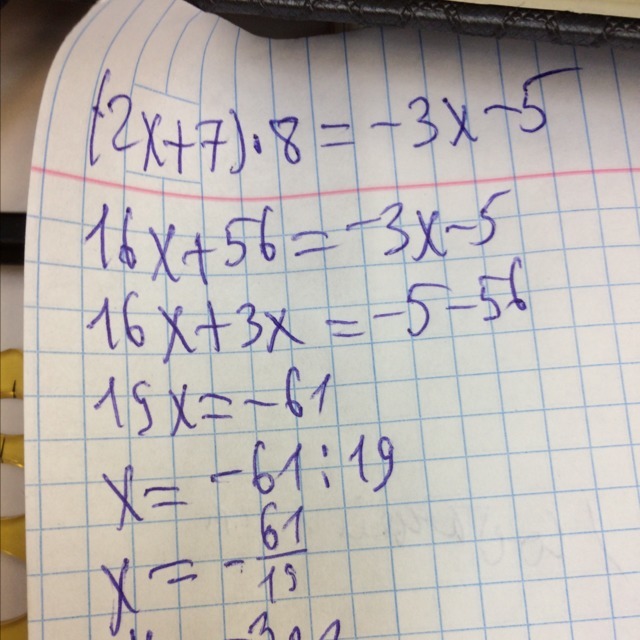 (2x+7)·8=-3x-5
16x+56=-3x-5
16x+3x=-5-56
19x=-61
x=-61:19
x=-61/19